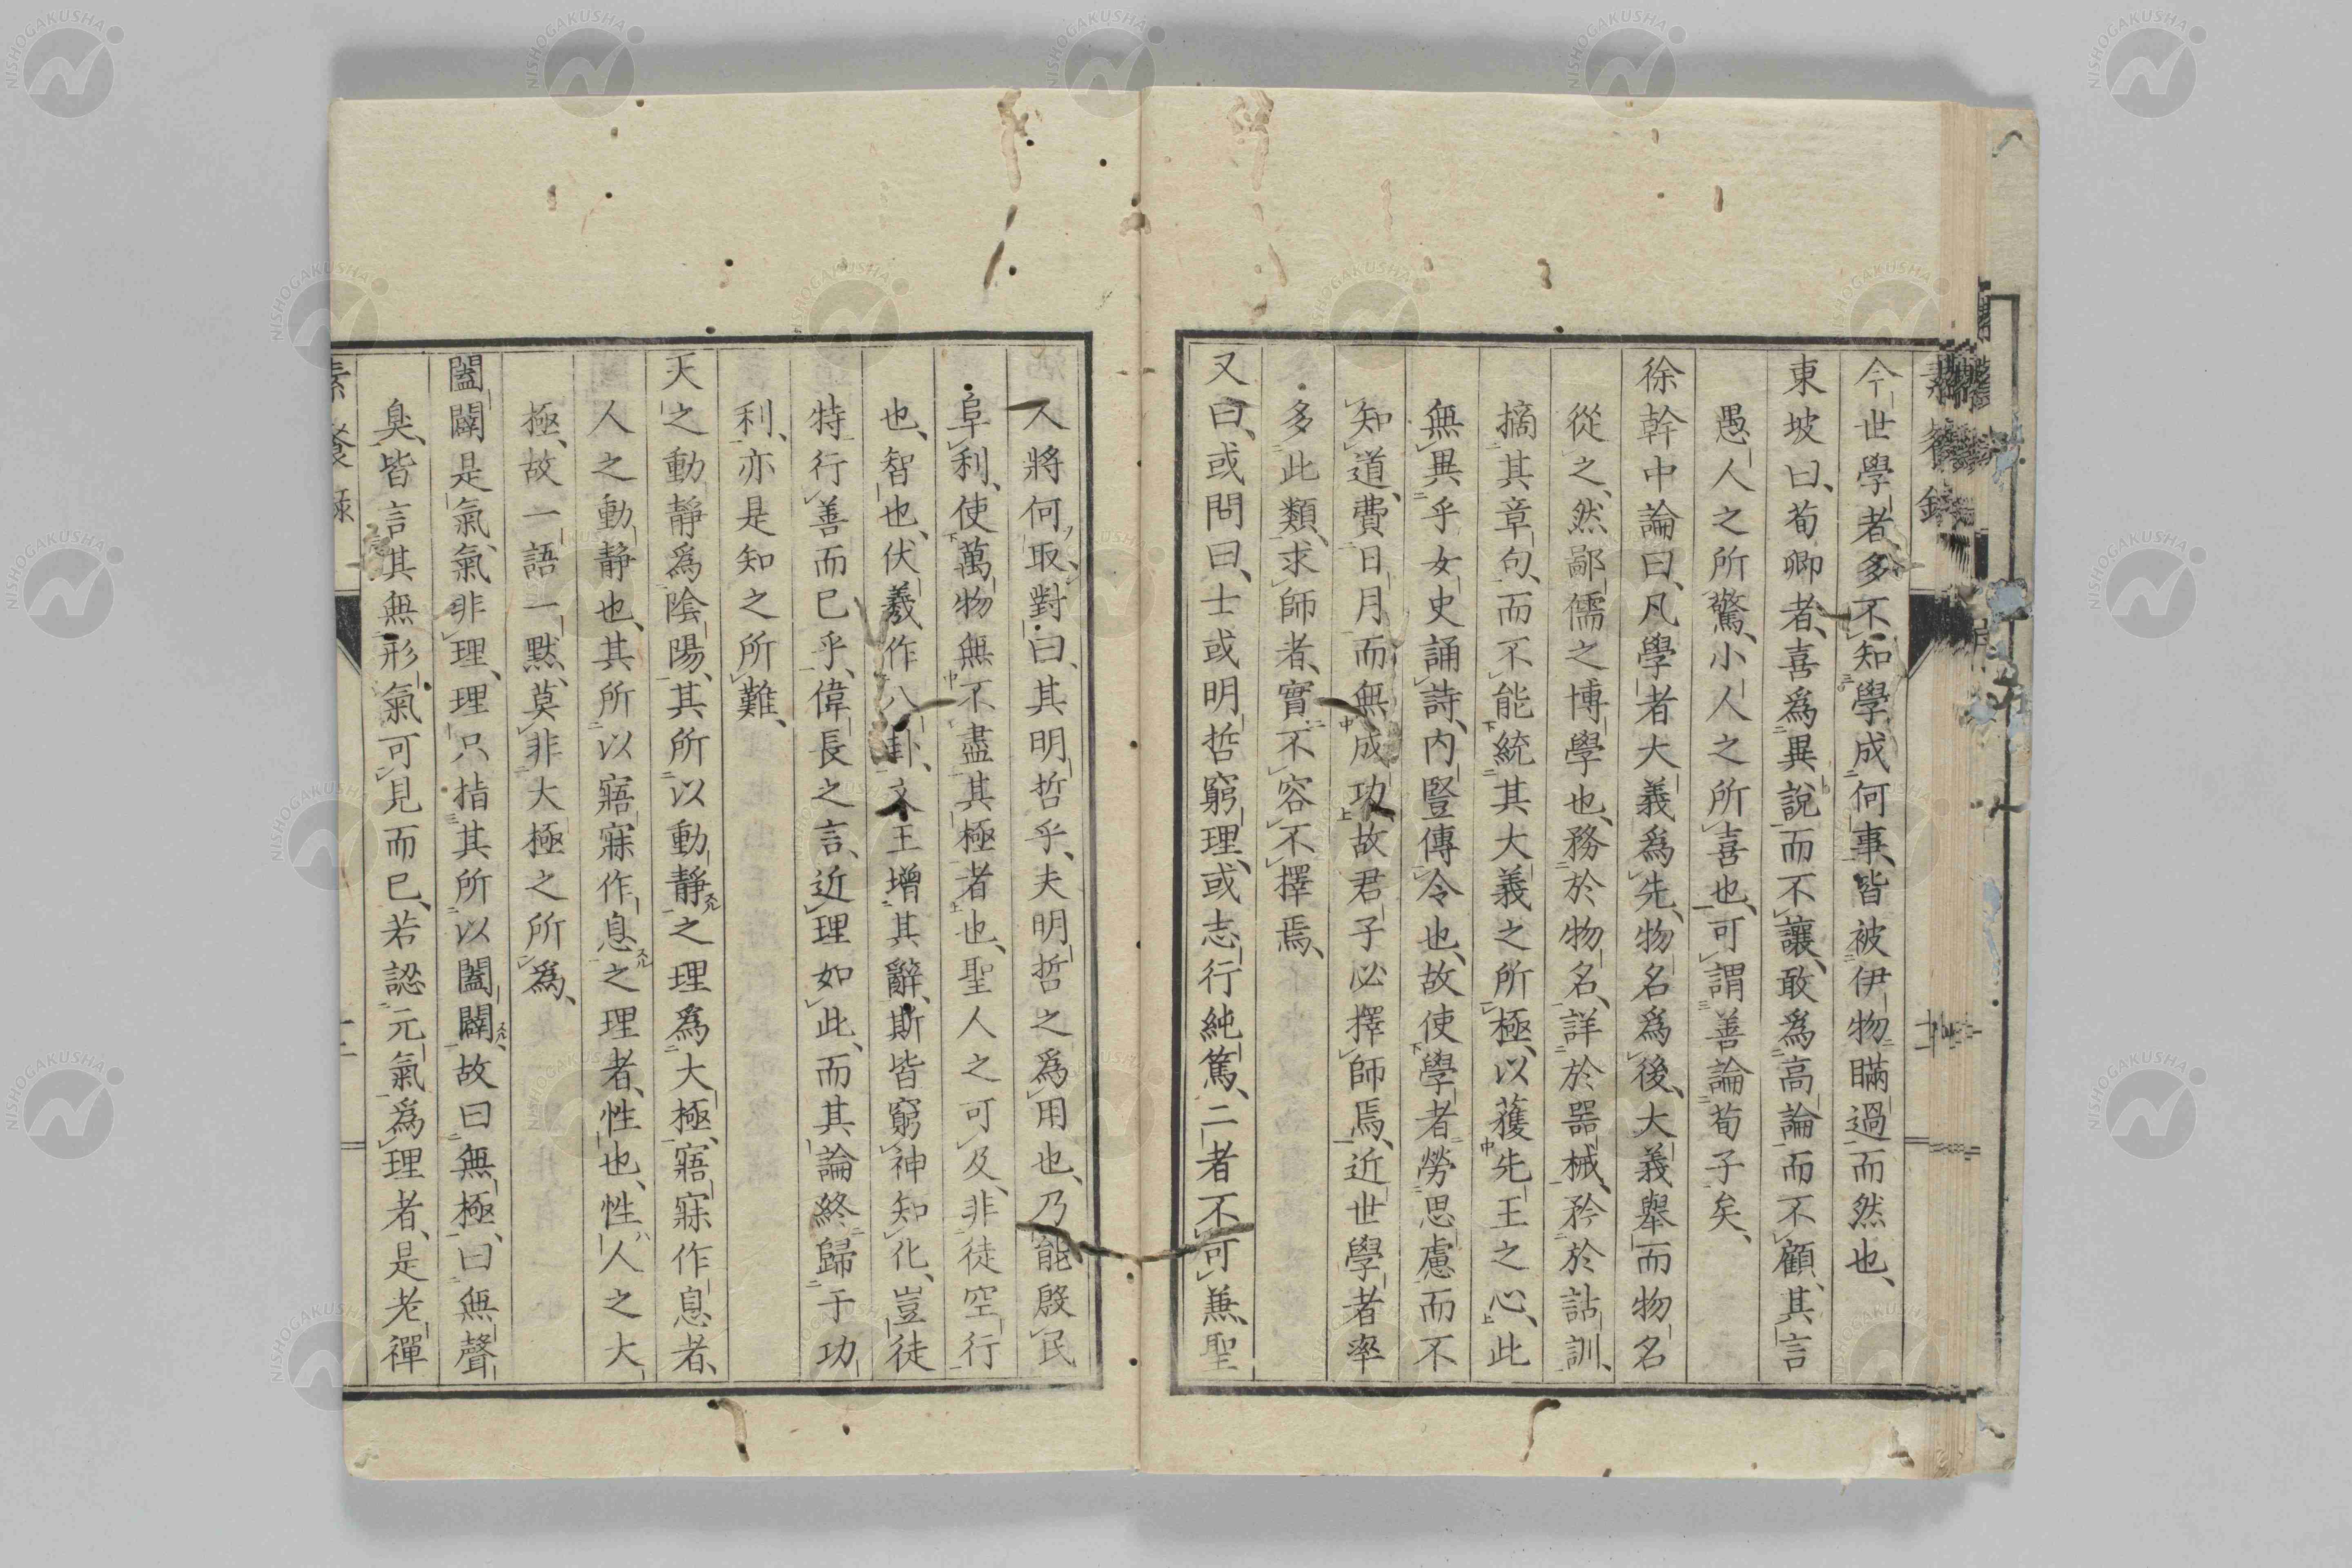 今世學者多不知學成何事、皆被伊物瞞過而然也、
東坡曰、荀卿者、喜爲異說而不讓、敢爲高論而不顧、其言
愚人之所驚、小人之所喜也、可謂善論荀子矣、
徐幹中論曰、凡學者大義爲先、物名爲後、大義舉而物名
從之、然鄙儒之博學也、務於物名、詳於器械、矜於詁訓、
摘其章句、而不能統其大義之所極、以獲先王之心、此
無異乎女史誦詩、内豎傳令也、故使學者勞思慮而不
知道、費日月而無成功、故君子必擇師焉、近世學者率
多此類、求師者、實不容不擇焉、
又曰、或問曰、士或明哲窮理、或志行純篤、二者不可兼、聖
人將何取、對曰、其明哲乎、夫明哲之爲用也、乃能殷民
阜利、使萬物無不盡其極者也、聖人之可及、非徒空行
也、智也、伏羲作八卦、文王增其辭、斯皆窮神知化、豈徒
特行善而已乎、偉長之言、近理如此、而其論終歸于功
利、亦是知之所難、
天之動靜爲陰陽、其所以動靜之理爲大極、寤寐作息者、
人之動靜也、其所以寤寐作息之理者、性也、性人之大
極、故一語一默、莫非大極之所爲、
闔闢是氣、氣非理、理只指其所以闔闢、故曰無極、曰無聲
臭、皆言其無形氣可見而已、若認元氣爲理者、是老禪